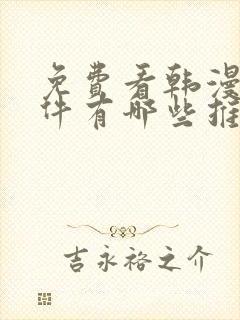 免费看韩漫
件有哪些推
吉永裕之介